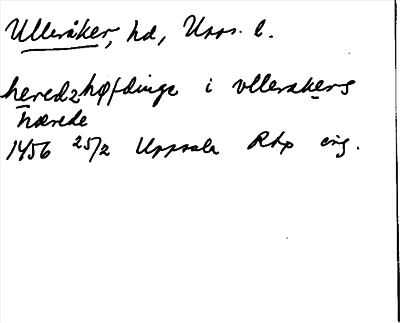 Ulleråker, hd, Upps. l.
heredzhøfdinge i vllerakers
hærede
1456 25/2 Uppsala RAp orig.